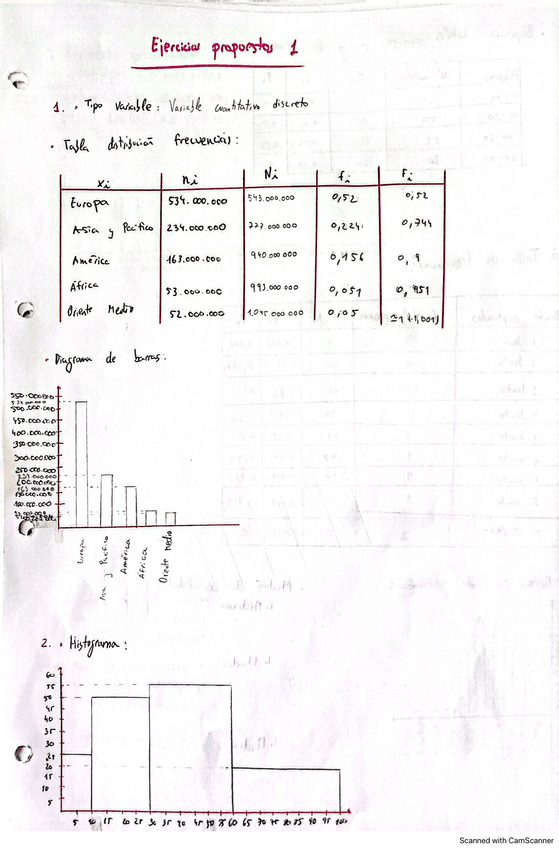 Ejercicios propuestos 1
1. · Tipo variable: Variable cuantitativa discreta
· Tabla distribución frecuencias:
xi ni Ni fi Fi
Europa 534.000.000 543.000.000 0,52 0,52
Asia y Pacífico 234.000.000 777.000.000 0,224 0,744
América 163.000.000 940.000.000 0,156 0,9
África 53.000.000 993.000.000 0,051 0,951
Oriente Medio 52.000.000 1.045.000.000 0,05 ≃1 (1,001)
· Diagrama de barras:
550.000.000
500.000.000
450.000.000
400.000.000
350.000.000
300.000.000
250.000.000
100.000.000
Europa
Asia y Pacífico
América
África
Oriente Medio
2. · Histograma:
60
55
50
45
40
35
30
25
20
15
10
5
5 10 15 20 25 30 35 40 45 50 55 60 65 70 75 80 85 90 95 100
Scanned with CamScanner